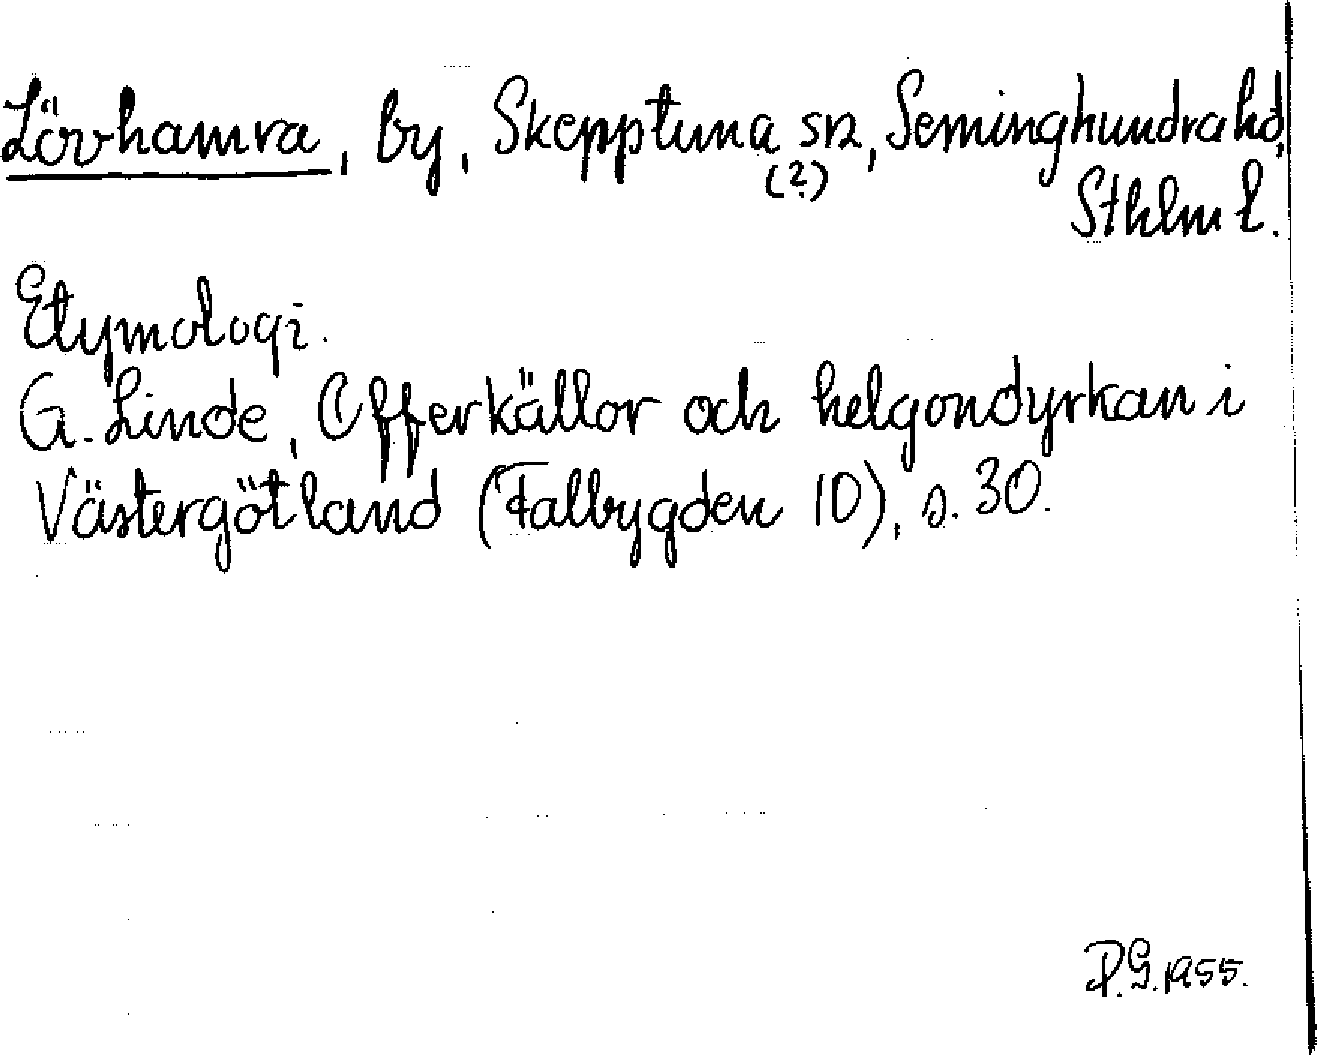 Lövhamra, by, Skepptuna sn, Seminghundra hd,
(?)
Sthlm l.
Etymologi.
G. Linde, Offerkällor och helgondyrkan i
Västergötland (Falbygden 10), s. 30.
P.G. 1955.